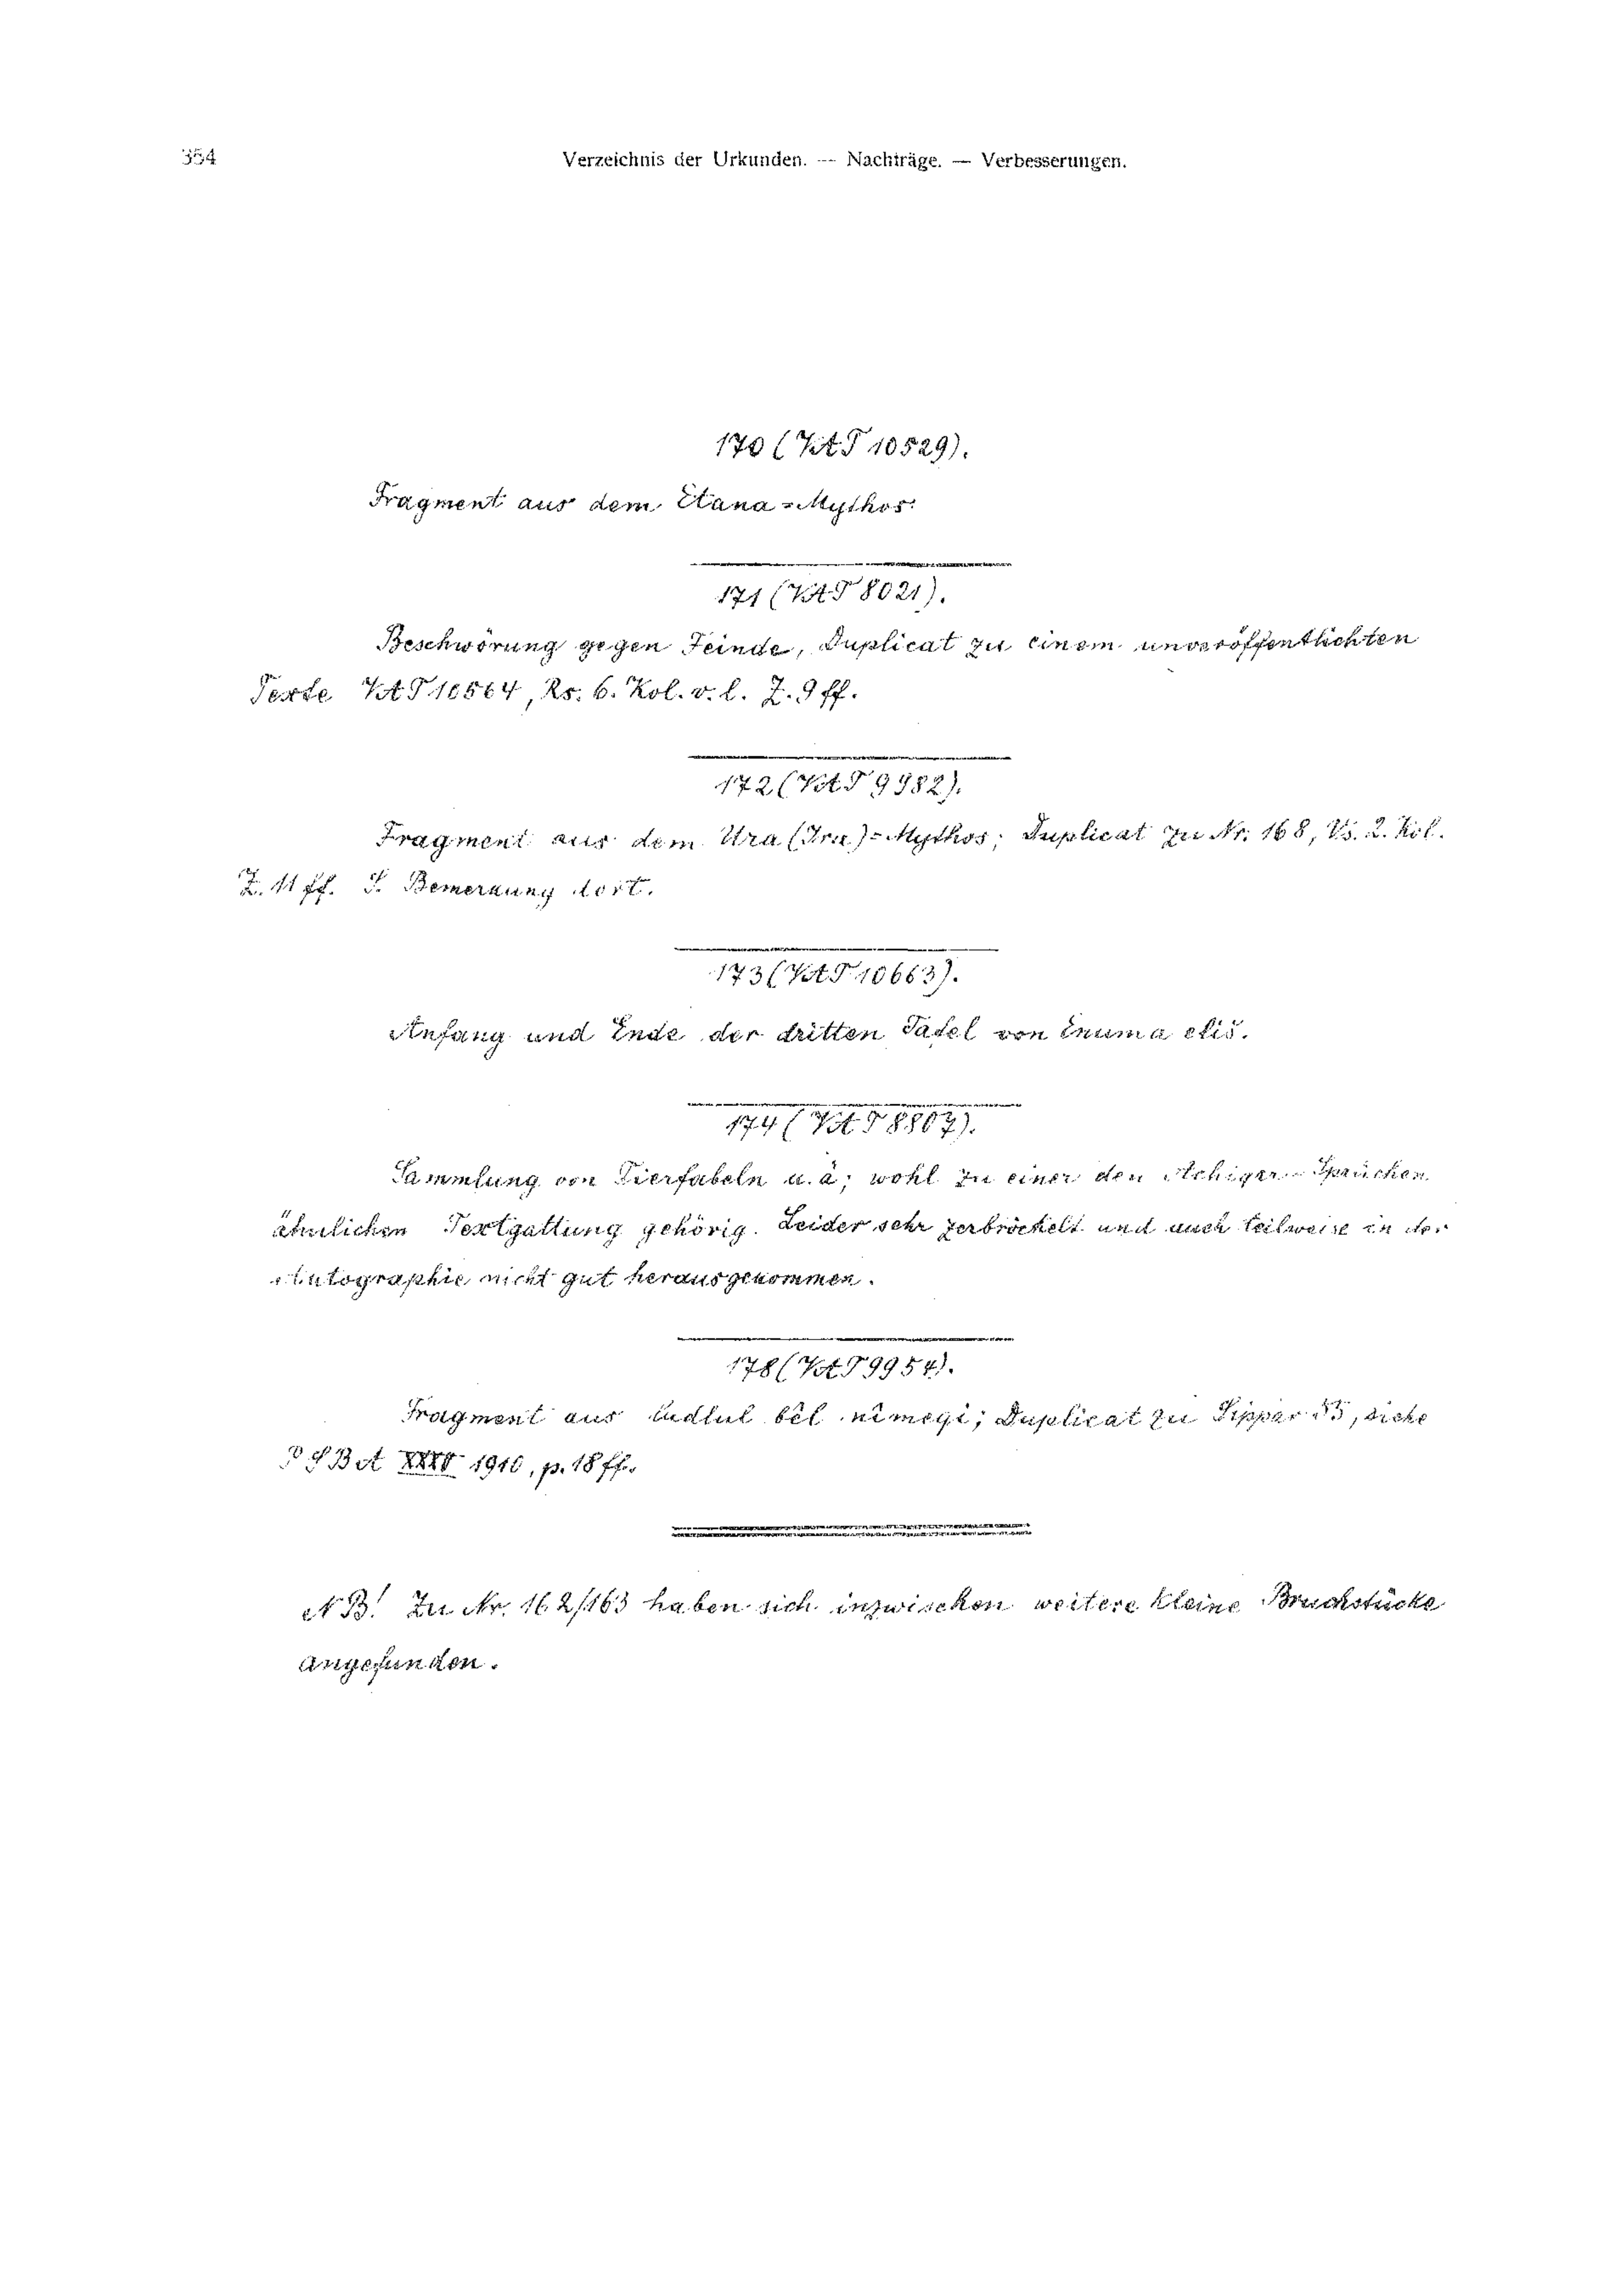 354
Verzeichnis der Urkunden. — Nachträge. — Verbesserungen.
170 (VAT 10529).
Fragment aus dem Etana-Mythos.
171 (VAT 8021).
Beschwörung gegen Feinde, Duplicat zu einem unveröffentlichten
Texte VAT 10564, Rs. 6. Kol. v. l. Z. 9 ff.
172 (VAT 9982).
Fragment aus dem Ura (Ira)-Mythos; Duplicat zu Nr. 168, Vs. 2. Kol.
Z. 11 ff. S. Bemerkung dort.
173 (VAT 10663).
Anfang und Ende der dritten Tafel von Enuma eliš.
174 (VAT 8807).
Sammlung von Tierfabeln u. ä; wohl zu einer den Achiqar-Sprüchen
ähnlichen Textgattung gehörig. Leider sehr zerbröckelt und auch teilweise in der
Autographie nicht gut herausgekommen.
178 (VAT 9954).
Fragment aus ludlul bêl nimeqi; Duplicat zu Sippar 55, siehe
PSBA 1910, p. 18 ff.
NB! Zu Nr. 162/163 haben sich inzwischen weitere kleine Bruchstücke
angefunden.